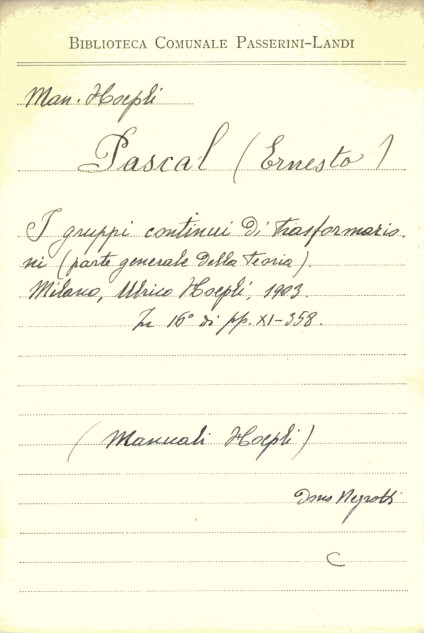 BIBLIOTECA COMUNALE PASSERINI-LANDI
Man. Hoepli
Pascal (Ernesto)
I gruppi continui di trasformazio-
ni (parte generale della teoria).
Milano, Ulrico Hoepli, 1903.
In 16° di pp. XI-358.
(Manuali Hoepli)
Dono Negrotti
C